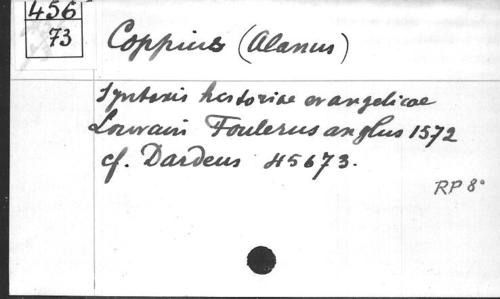 456
73
Coppius (Alanus)
Syntaxis historiae evangelicae
Louvain Foulerus anglus 1572
cf. Dardeus 45673.
RP 8°